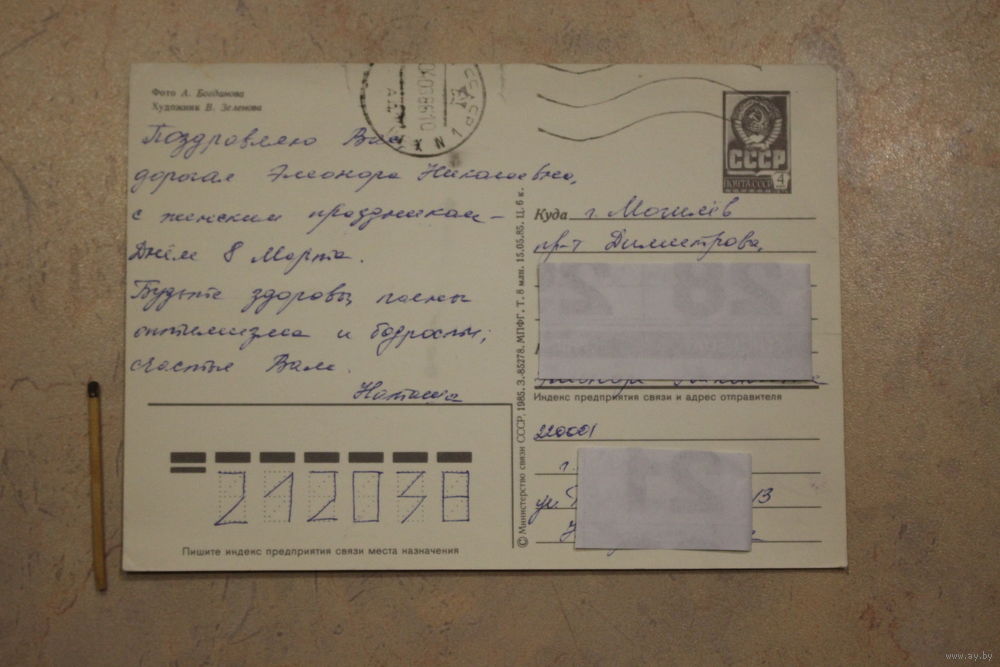 Фото А. Богданова
Художник В. Зеленова
Поздравляю Вас,
дорогая Элеонора Николаевна,
с женским праздником –
Днём 8 Марта.
Будьте здоровы, полны
оптимизма и бодрости,
счастья Вам.
Наташа
СССР
ПОЧТА СССР
4
Куда г. Могилёв
пр-т Димитрова,
Индекс предприятия связи и адрес отправителя
220001
г.
ул.
13
© Министерство связи СССР, 1985. З.-85278. МПФГ. Т. 8 млн. 15.05.85. Ц. 6 к.
212038
Пишите индекс предприятия связи места назначения
www.ay.by